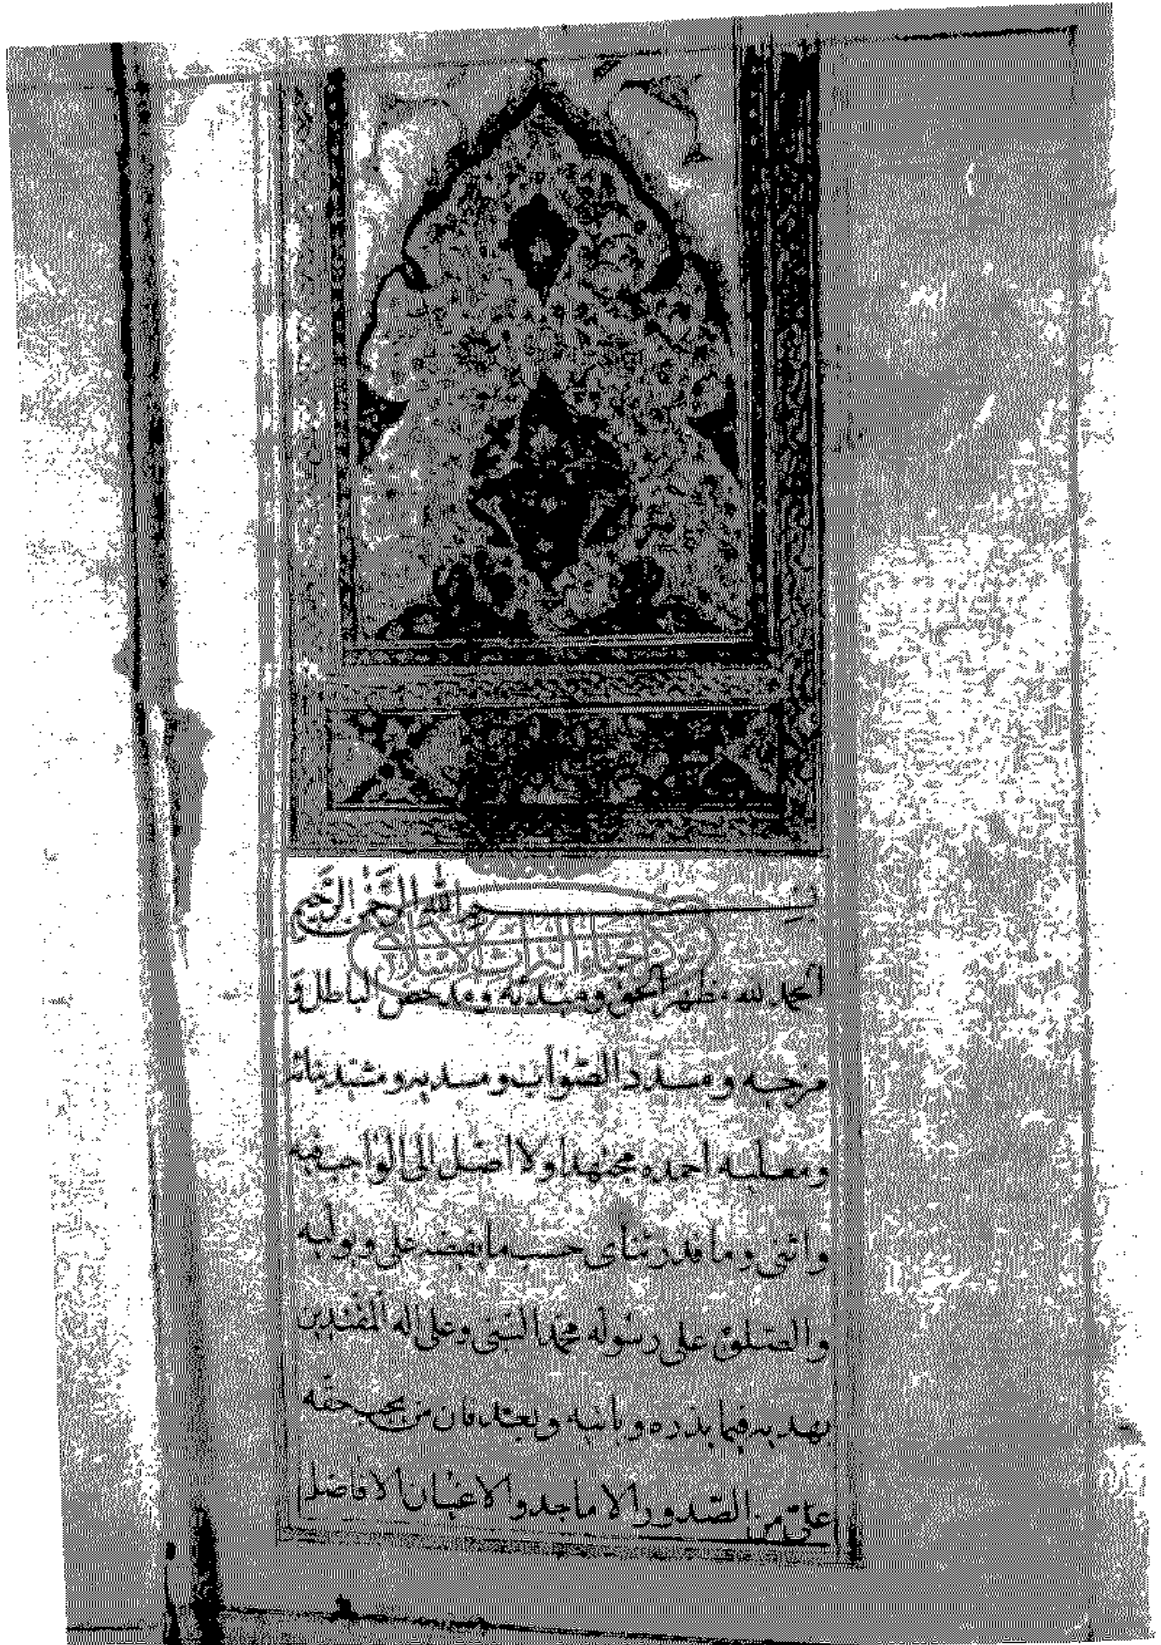 بسم الله الرحمن الرحيم
مركز احياء التراث الاسلامي
الحمد لله مظهر الحق ومبديه ومدحض الباطل و
مزجيه ومسدد الصواب ومسديه ومشيد بنائه
ومعليه احمده مجتهدا ولا اصل الى الواجب فيه
واثني وما قدر ثناي حسب ما يفيضه علي ويوليه
والصلوة على رسوله محمد النبي وعلى اله المقتدين
بهديه فيما يذره وياتيه وبعد فان من يجب حقه
علي من الصدور الاماجد والاعيان الافاضل